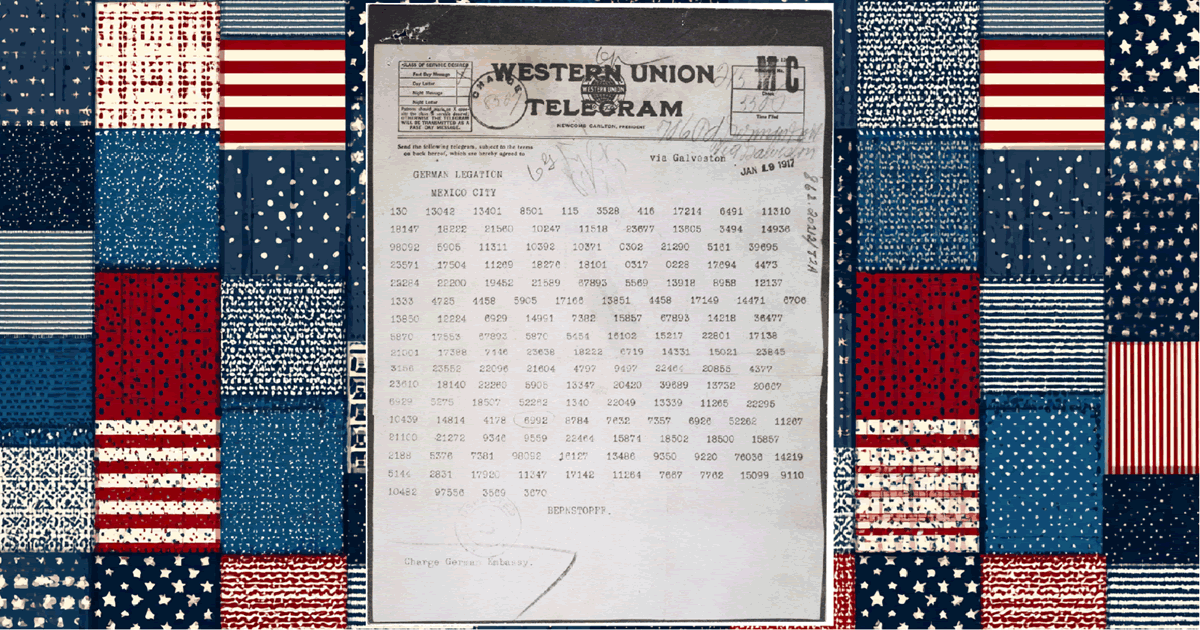 WESTERN UNION
TELEGRAM
WESTERN UNION
NEWCOMB CARLTON, PRESIDENT
CLASS OF SERVICE DESIRED
Fast Day Message
Day Letter
Night Message
Night Letter
Patrons should mark an X oppo-
site the class of service desired;
OTHERWISE THE TELEGRAM
WILL BE TRANSMITTED AS A
FAST DAY MESSAGE.
CHARGE
Check
Time Filed
Send the following telegram, subject to the terms
on back hereof, which are hereby agreed to
via Galveston
JAN 19 1917
GERMAN LEGATION
MEXICO CITY
130 13042 13401 8501 115 3528 416 17214 6491 11310
18147 18222 21560 10247 11518 23677 13605 3494 14936
98092 5905 11311 10392 10371 0302 21290 5161 39695
23571 17504 11269 18276 18101 0317 0228 17694 4473
23284 22200 19452 21589 67893 5569 13918 8958 12137
1333 4725 4458 5905 17166 13851 4458 17149 14471 6706
13850 12224 6929 14991 7382 15857 67893 14218 36477
5870 17553 67893 5870 5454 16102 15217 22801 17138
21001 17388 7446 23638 18222 6719 14331 15021 23845
3156 23552 22096 21604 4797 9497 22464 20855 4377
23610 18140 22260 5905 13347 20420 39689 13732 20667
6929 5275 18507 52262 1340 22049 13339 11265 22295
10439 14814 4178 6992 8784 7632 7357 6926 52262 11267
21100 21272 9346 9559 22464 15874 18502 18500 15857
2188 5376 7381 98092 16127 13486 9350 9220 76036 14219
5144 2831 17920 11347 17142 11264 7667 7762 15099 9110
10482 97556 3569 3670
BERNSTORFF.
Charge German Embassy.